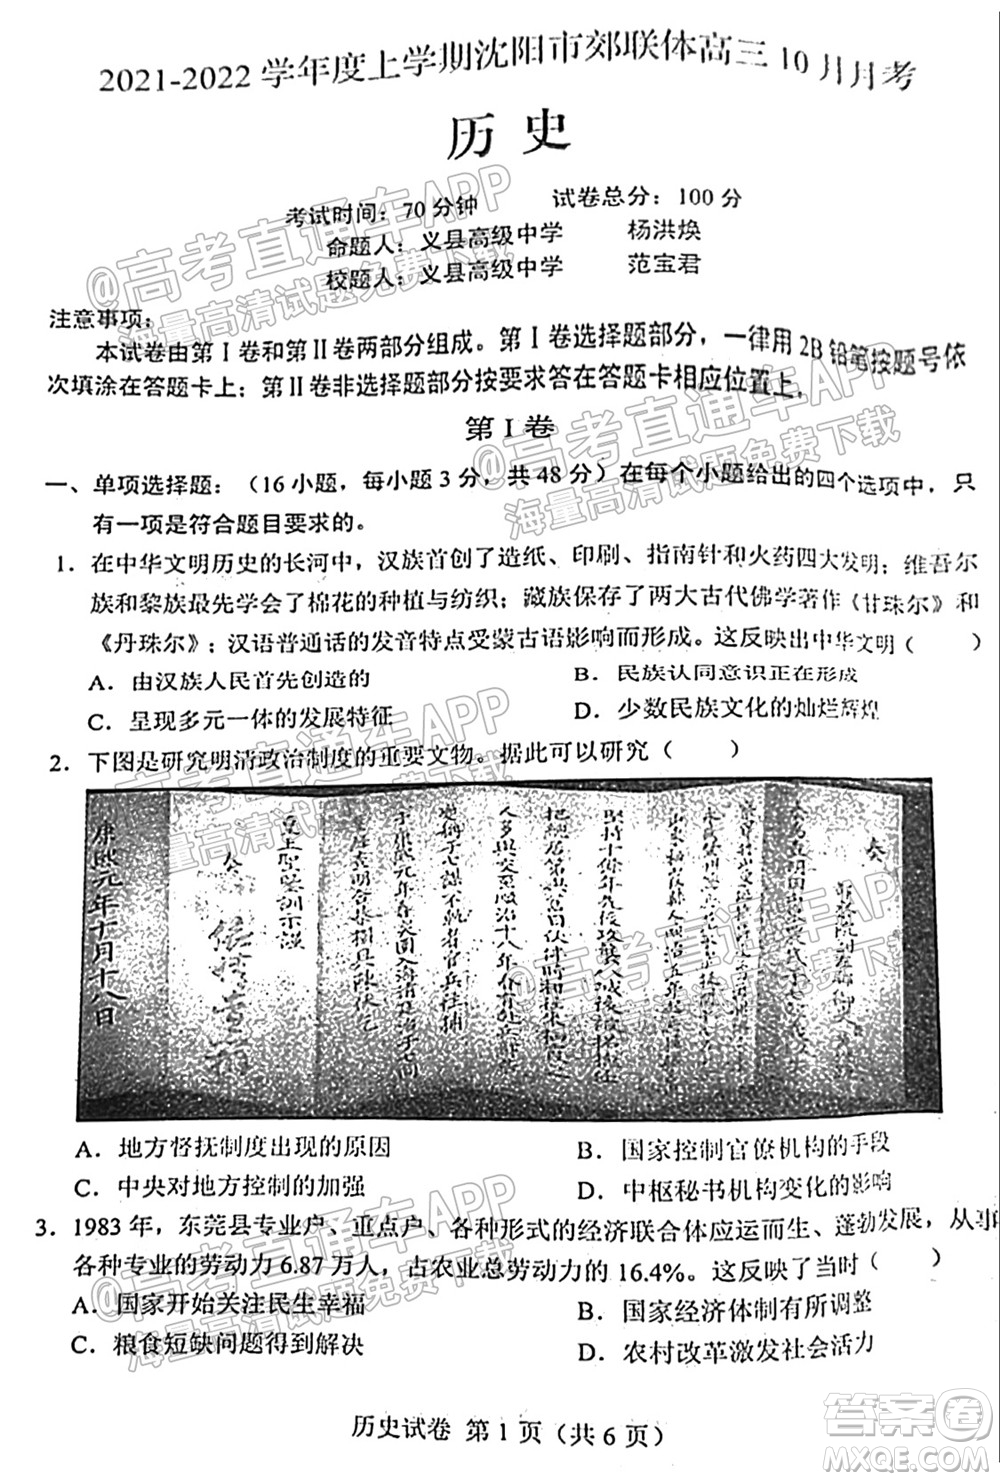 2021-2022学年度上学期沈阳市郊联体高三10月月考
历 史
考试时间：70分钟 试卷总分：100分
命题人：义县高级中学 杨洪焕
校题人：义县高级中学 范宝君
注意事项：
本试卷由第Ⅰ卷和第Ⅱ卷两部分组成。第Ⅰ卷选择题部分，一律用2B铅笔按题号依
次填涂在答题卡上；第Ⅱ卷非选择题部分按要求答在答题卡相应位置上。
第Ⅰ卷
一、单项选择题：（16小题，每小题3分，共48分）在每个小题给出的四个选项中，只
有一项是符合题目要求的。
1．在中华文明历史的长河中，汉族首创了造纸、印刷、指南针和火药四大发明；维吾尔
族和黎族最先学会了棉花的种植与纺织；藏族保存了两大古代佛学著作《甘珠尔》和
《丹珠尔》；汉语普通话的发音特点受蒙古语影响而形成。这反映出中华文明（ ）
A．由汉族人民首先创造的 B．民族认同意识正在形成
C．呈现多元一体的发展特征 D．少数民族文化的灿烂辉煌
2．下图是研究明清政治制度的重要文物。据此可以研究（ ）
康熙元年十月十八日
奏
皇上圣鉴训示谨
奏
A．地方督抚制度出现的原因 B．国家控制官僚机构的手段
C．中央对地方控制的加强 D．中枢秘书机构变化的影响
3．1983年，东莞县专业户、重点户、各种形式的经济联合体应运而生、蓬勃发展，从事
各种专业的劳动力6.87万人，占农业总劳动力的16.4%。这反映了当时（ ）
A．国家开始关注民生幸福 B．国家经济体制有所调整
C．粮食短缺问题得到解决 D．农村改革激发社会活力
历史试卷 第1页（共6页）
@高考直通车APP
海量高清试题免费下载
@高考直通车APP
海量高清试题免费下载
@高考直通车APP
海量高清试题免费下载
@高考直通车APP
海量高清试题免费下载
@高考直通车APP
海量高清试题免费下载
答案卷
MXQE.COM